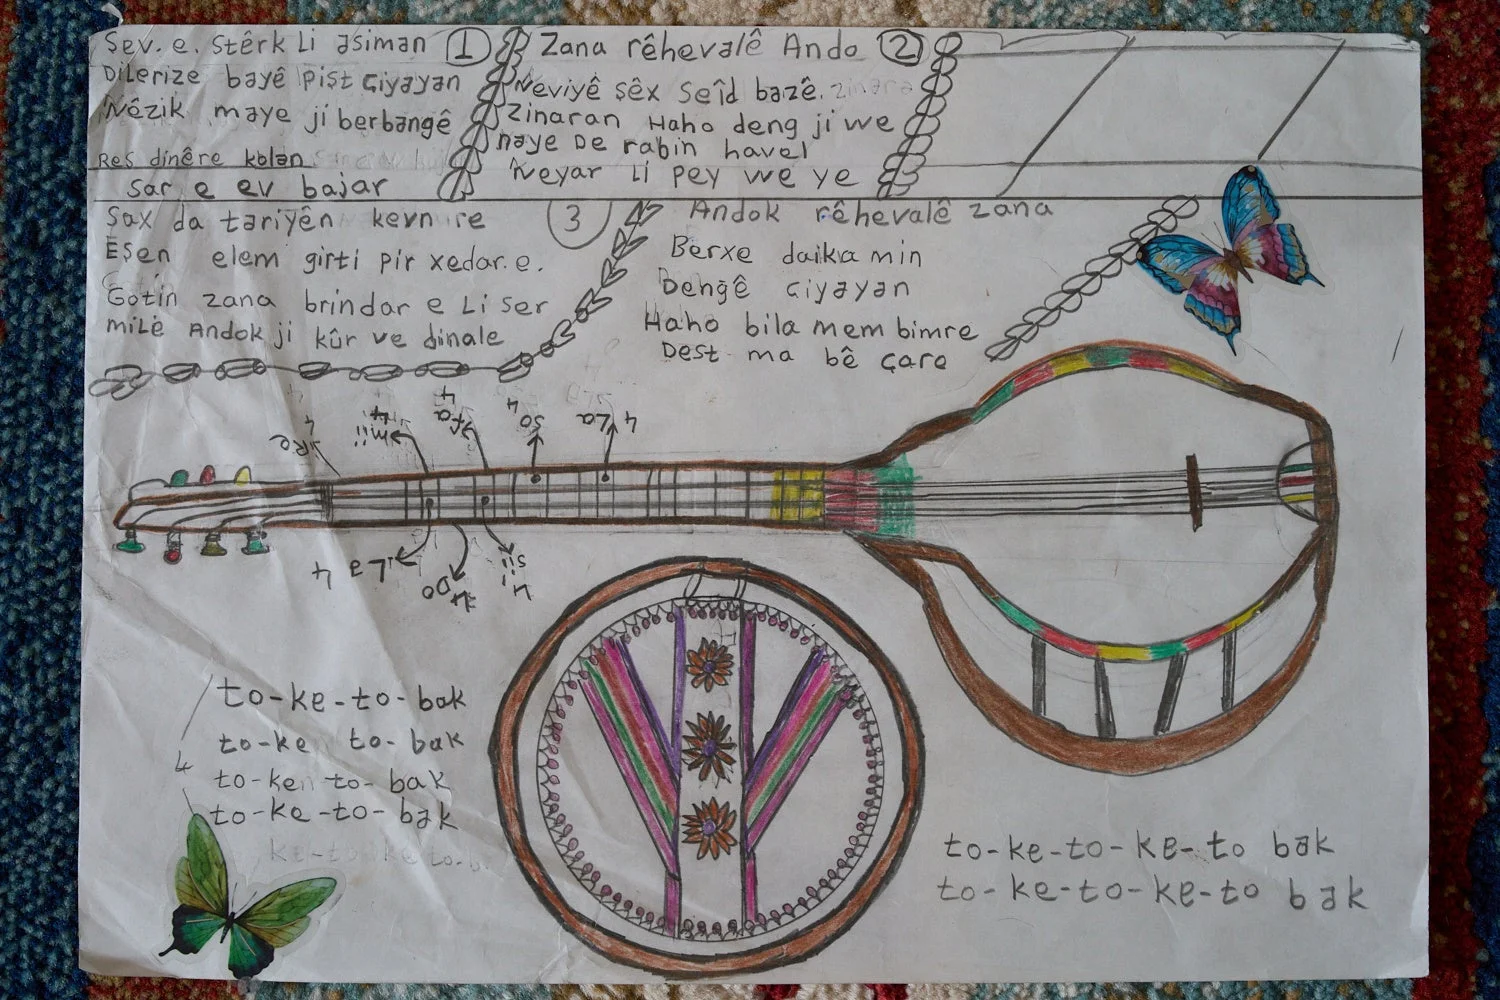 Şev. e. stêrk Li asiman 1
Dilerize bayê pişt çiyayan
Nêzik maye ji berbangê
Reş dinêre kolan
sar e ev bajar
Zana rêhevalê Ando 2
Neviyê şêx Seîd bazê.
Zinaran Haho deng ji we
naye De rabin havel
Neyar Li pey we ye
Şax da tariyên kevnire 3
Eşen elem girti pir xedar. e.
Gotin zana brindar e Li ser
milê Andok ji kûr ve dinale
Andok rêhevalê zana
Berxe daika min
Dengê çiyayan
Haho bila mem bimre
Dest ma bê çare
4 Re
4 mii
4 fa
4 So
4 La
4 La
4 Do
4 Sii
to-ke-to-bak
to-ke to-bak
4
to-ken to-bak
to-ke-to-bak
to-ke-to-ke-to bak
to-ke-to-ke-to bak